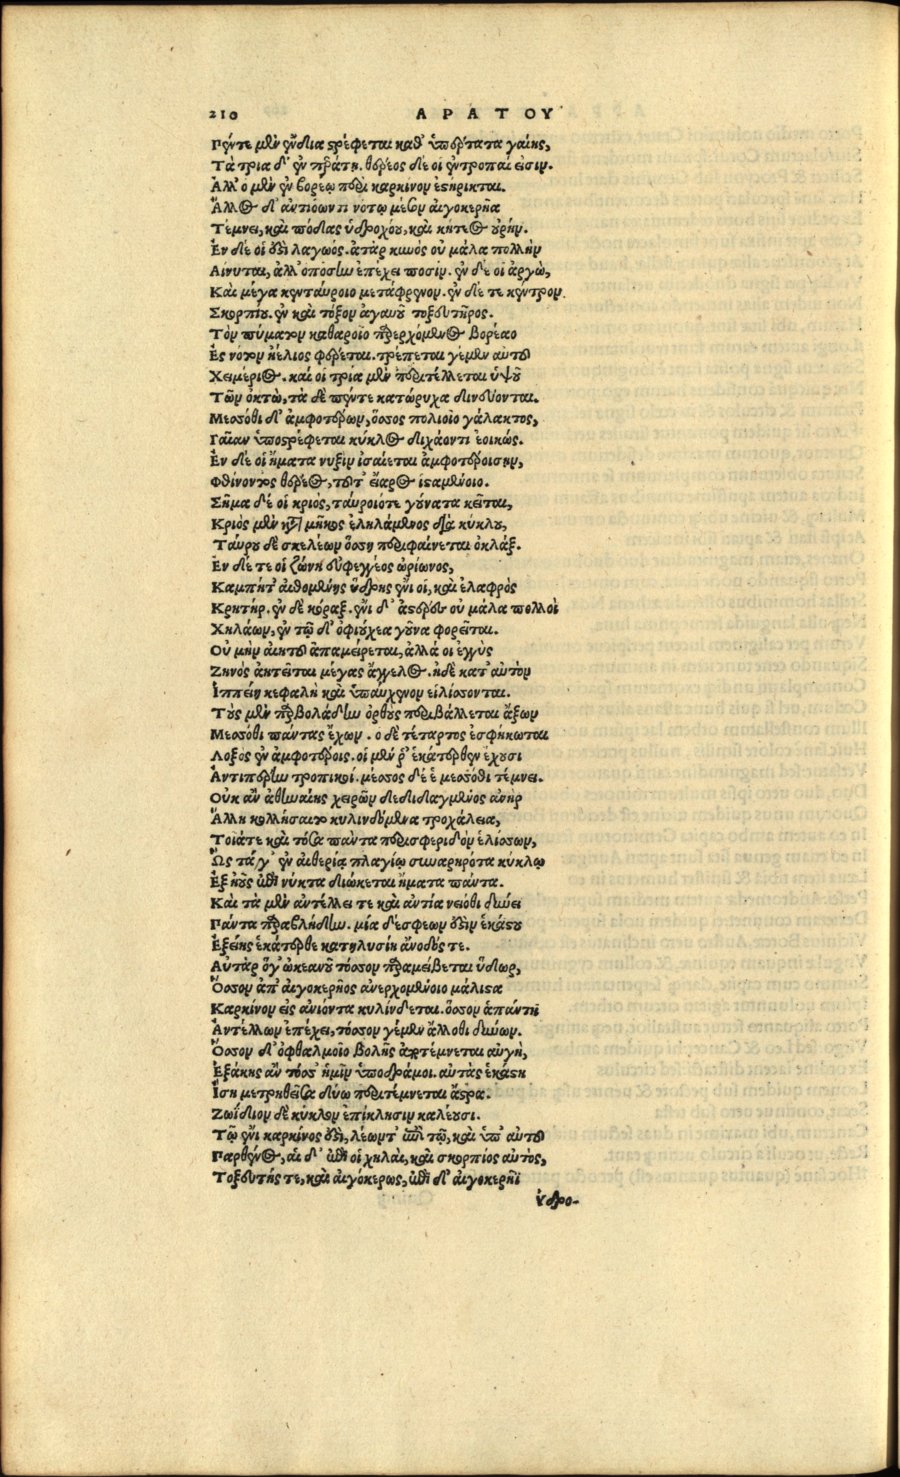 210 ΑΡΑΤΟΥ
Πέντε μὲν ἔνδια στρέφεται καθ᾽ ὑπέρτατα γαίης,
Τὰ τρία δ᾽ ἐν περάτῃ. θέρεος δέ οἱ ἐντροπαί εἰσιν.
Ἀλλ᾽ ὁ μὲν ἐν βορέῳ περὶ καρκίνον ἐστήρικται.
Ἄλλος δ᾽ ἀντιόωντι νότῳ μέσον αἰγοκερῆα
Τέμνει, καὶ πόδας ὑδροχόου, καὶ κήτεος οὐρήν.
Ἐν δέ οἱ ἐστὶ λαγωός. ἀτὰρ κυνὸς οὐ μάλα πολλὴν
Αἴνυται, ἀλλ᾽ ὁπόσην ἐπέχει ποσίν. ἐν δέ οἱ ἀργὼ,
Καὶ μέγα κενταύροιο μετάφρενον. ἐν δέ τε κέντρον
Σκορπίου. ἐν καὶ τόξον ἀγαυοῦ τοξευτῆρος.
Τὸν πύματον καθαροῖο παρερχόμενος βορέαο
Ἐς νότον ἠέλιος φέρεται. τρέπεται γέ μὲν αὐτοῦ
Χειμέριος. καί οἱ τρία μὲν περιτέλλεται ὑψοῦ
Τῶν ὀκτὼ, τὰ δὲ πέντε κατώρυχα δινεύονται.
Μεσσόθι δ᾽ ἀμφοτέρων, ὅσσος πολιοῖο γάλακτος,
Γαῖαν ὑποστρέφεται κύκλος διχάοντι ἐοικώς.
Ἐν δέ οἱ ἤματα νυξὶν ἰσαίεται ἀμφοτέροισιν,
Φθίνοντος θέρεος, τοῦτ᾽ εἴαρος ἱσαμένοιο.
Σῆμα δέ οἱ κριὸς, ταύροιό τε γούνατα κεῖται,
Κριὸς μὲν κατὰ μῆκος ἐληλάμενος διὰ κύκλου,
Ταύρου δὲ σκελέων ὅσση περιφαίνεται ὀκλάξ.
Ἐν δέ τέ οἱ ζώνη εὐφεγγέος ὠρίωνος,
Καμπήτ᾽ αἰθομένης ὕδρης ἐνί οἱ, καὶ ἐλαφρὸς
Κρητήρ. ἐν δὲ κόραξ. ἐνὶ δ᾽ ἀστέρες οὐ μάλα πολλοὶ
Χηλάων, ἐν τῷ δ᾽ ὀφιούχεα γοῦνα φορεῖται.
Οὐ μὴν αἰητοῦ ἀπαμείρεται, ἀλλά οἱ ἐγγὺς
Ζηνὸς ἀητεῖται μέγας ἄγγελος. ἡ δὲ κατ᾽ αὐτὸν
Ἱππείη κεφαλὴ καὶ ὑπαύχενον εἱλίσσονται.
Τοὺς μὲν παραβολάδην ὀρθοὺς περιβάλλεται ἄξων
Μεσσόθι πάντας ἔχων. ὁ δὲ τέταρτος ἐσφήκωται
Λοξὸς ἐν ἀμφοτέροις. οἱ μέν ῥ᾽ ἑκάτερθεν ἔχουσι
Ἀντιπέρην τροπικοί. μέσσος δέ ἑ μεσσόθι τέμνει.
Οὐκ ἂν ἀθηναίης χειρῶν δεδιδαγμένος ἀνὴρ
Ἄλλη κολλήσαιτο κυλινδόμενα τροχάλεια,
Τοῖά τε καὶ τόσα πάντα περισφεριδὸν ἑλίσσων,
Ὡς τάγ᾽ ἐν αἰθερίᾳ πλαγίῳ συναρηρότα κύκλῳ
Ἐξ ἠοῦς ἐπὶ νύκτα διώκεται ἤματα πάντα.
Καὶ τὰ μὲν ἀντέλλει τε καὶ ἀντία νειόθι δύνει
Πάντα παραβλήδην. μία δέ σφεων ἐστὶν ἑκάστου
Ἑξείης ἑκάτερθε κατηλυσίη ἄνοδός τε.
Αὐτὰρ ὅγ᾽ ὠκεανοῦ τόσσον παραμείβεται ὕδωρ,
Ὅσσον ἀπ᾽ αἰγοκερῆος ἀνερχομένοιο μάλιστα
Καρκίνον εἰς ἀνιόντα κυλίνδεται. ὅσσον ἁπάντη
Ἀντέλλων ἐπέχει, τόσσον γέ μὲν ἄλλοθι δύνων.
Ὅσσον δ᾽ ὀφθαλμοῖο βολῆς ἀποτέμνεται αὐγὴ,
Ἑξάκης ἂν τόσσ᾽ ἡμῖν ὑποδράμοι. αὐτὰς ἑκάστη
Ἴση μετρηθεῖσα δύω περιτέμνεται ἄστρα.
Ζωΐδιον δὲ κύκλον ἐπίκλησιν καλέουσι.
Τῷ ἐνὶ καρκίνος ἐστὶ, λέωντ᾽ ἐπὶ τῷ, καὶ ὑπ᾽ αὐτοῦ
Παρθένος, αἱ δ᾽ ἐπί οἱ χηλαὶ, καὶ σκορπίος αὐτὸς,
Τοξευτής τε, καὶ αἰγόκερως, ἐπὶ δ᾽ αἰγοκερῆϊ
ὑδρο-